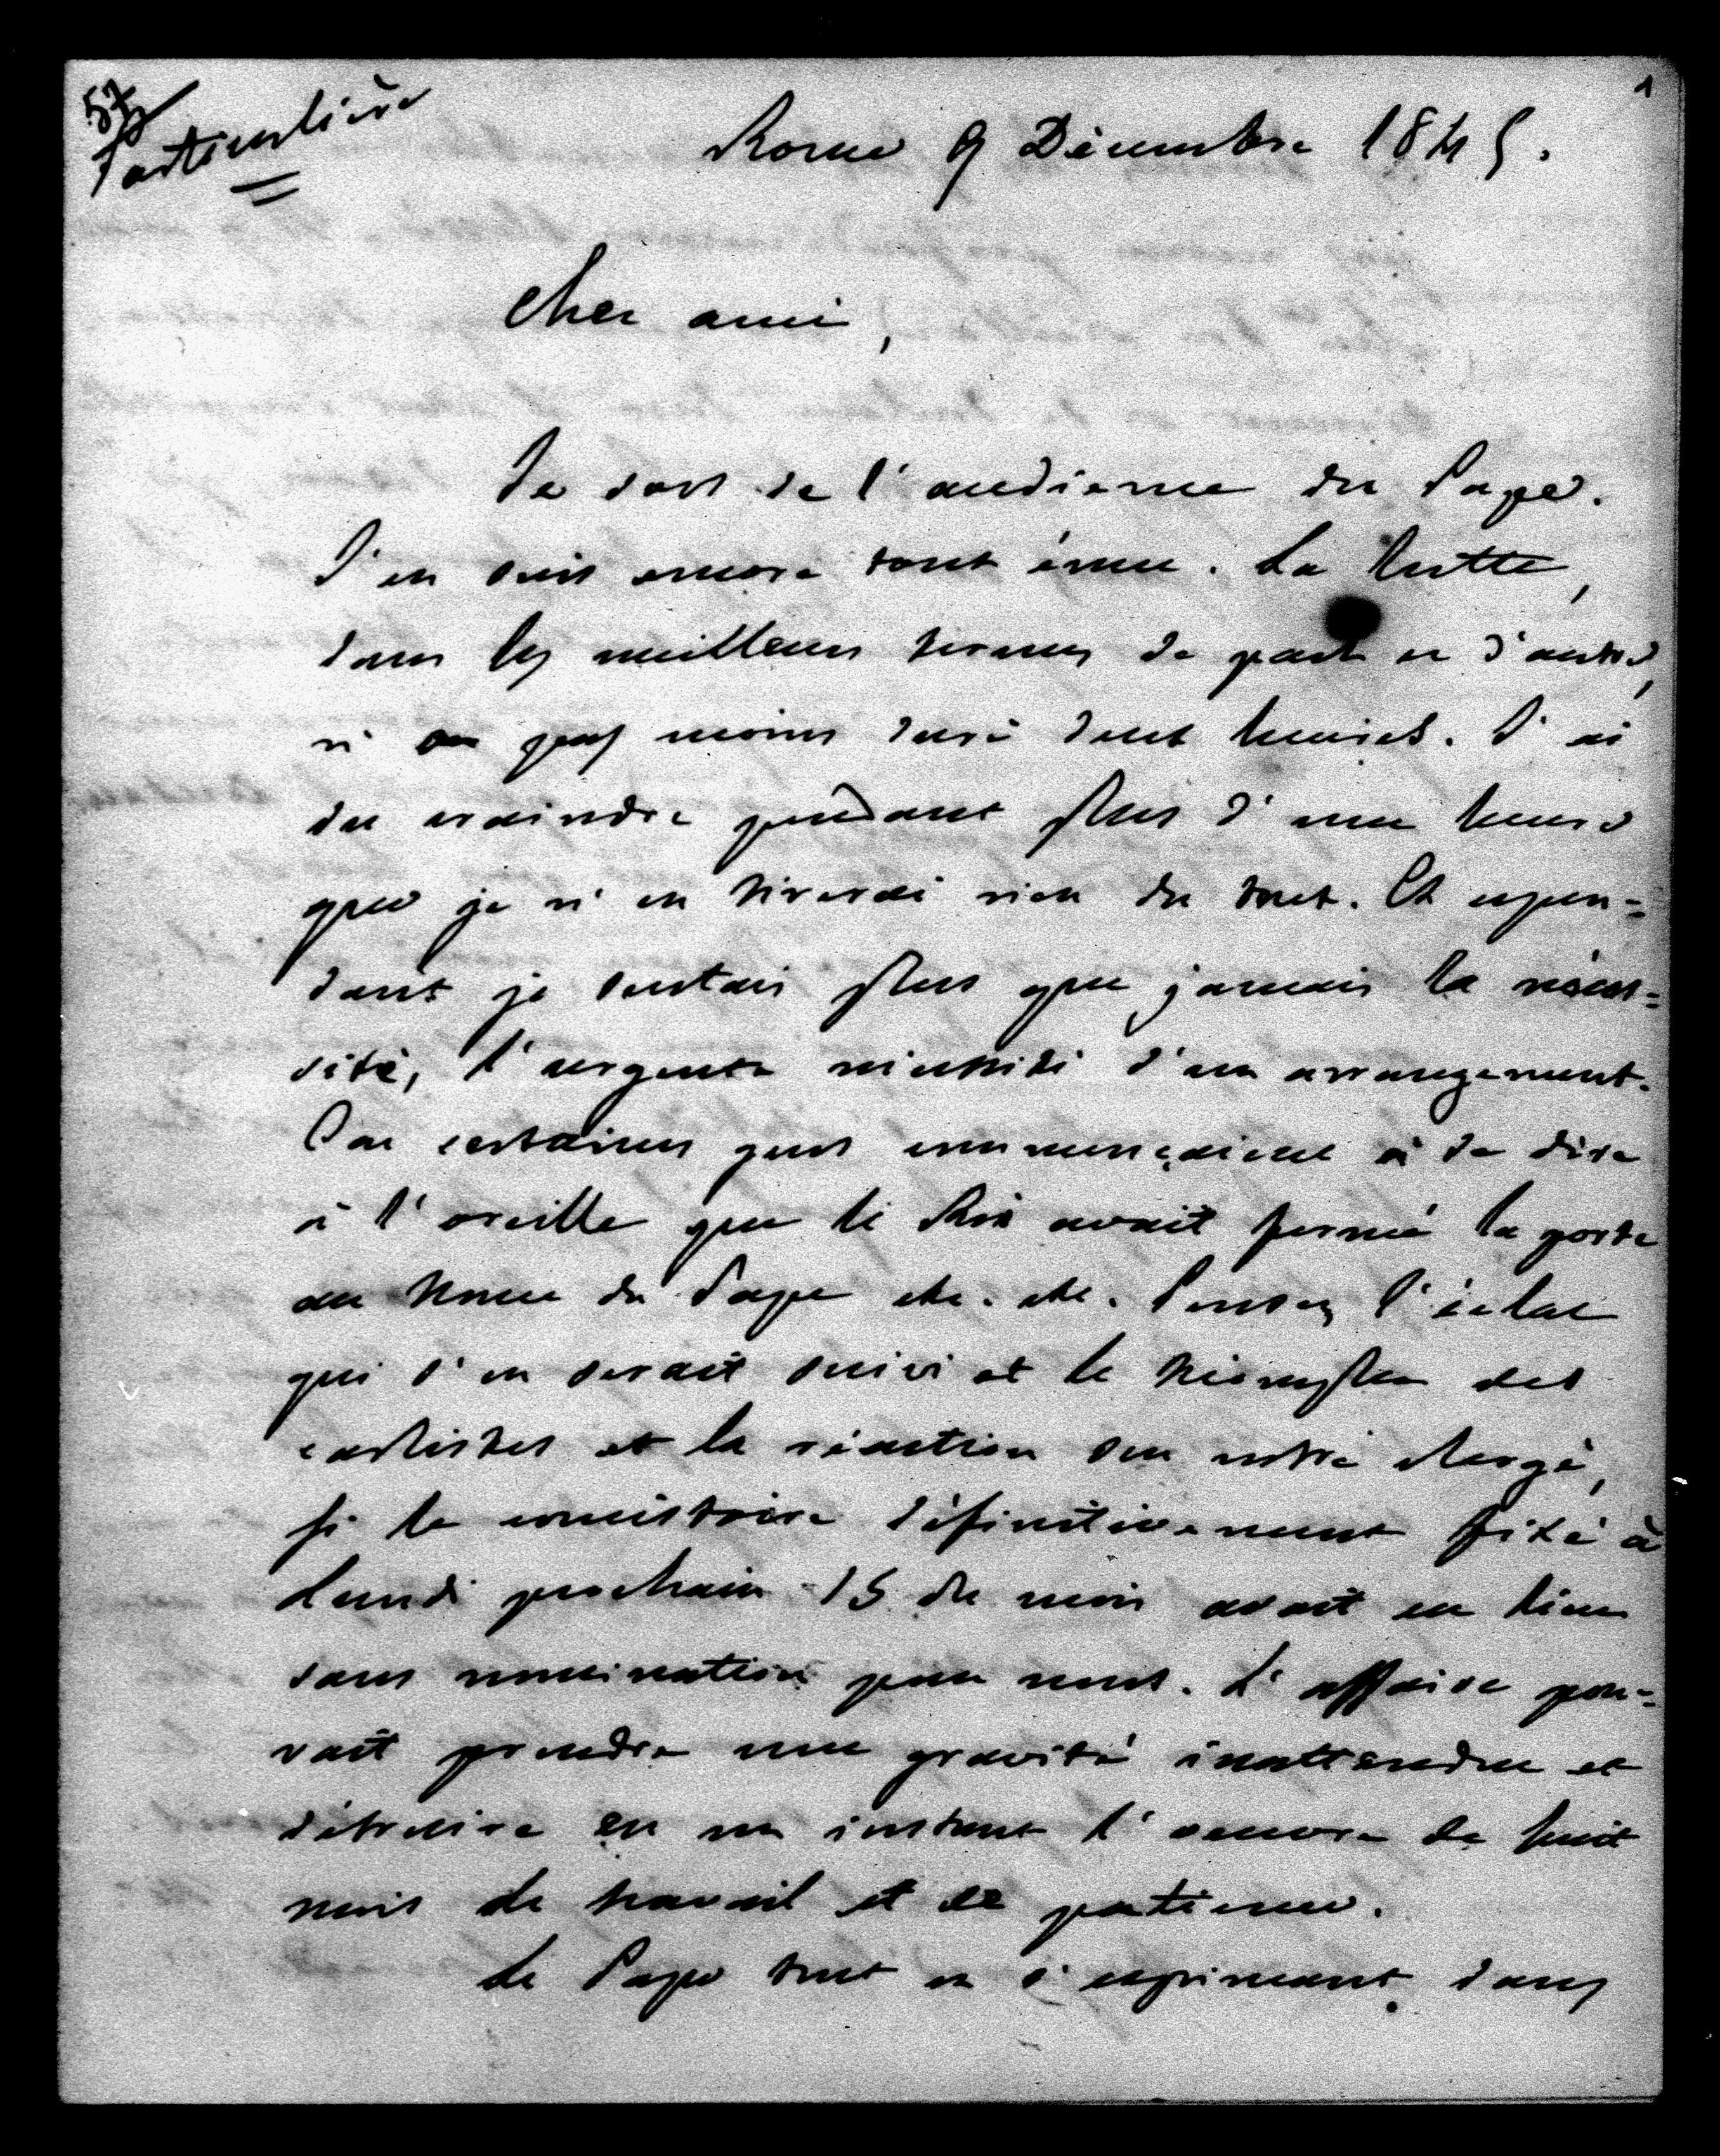 57
Particulière
1
Rome 9 Décembre 1845.
Cher ami,
Je sors de l'audience du Pape.
J'en suis encore tout ému. La lutte,
dans les meilleurs termes de part et d'autre,
n'a pas moins duré deux heures. J'ai
du craindre pendant plus d'une heure
que je n'en tirerai rien du tout. Et cepen=
dant je sentais plus que jamais la néces=
sité, l'urgente nécessité d'un arrangement.
Car certaines gens commençaient à se dire
à l'oreille que le Roi avait fermé la porte
au Nonce du Pape etc. etc. Pensez l'éclat
qui s'en serait suivi et le triomphe des
carlistes et la réaction sur notre clergé,
si le consistoire définitivement fixé à
lundi prochain 15 du mois avait eu lieu
sans nomination pour nous. L'affaire pou=
vait prendre une gravité inattendue et
détruire en un instant l'oeuvre de huit
mois de travail et de patience.
Le Pape tout en s'exprimant dans